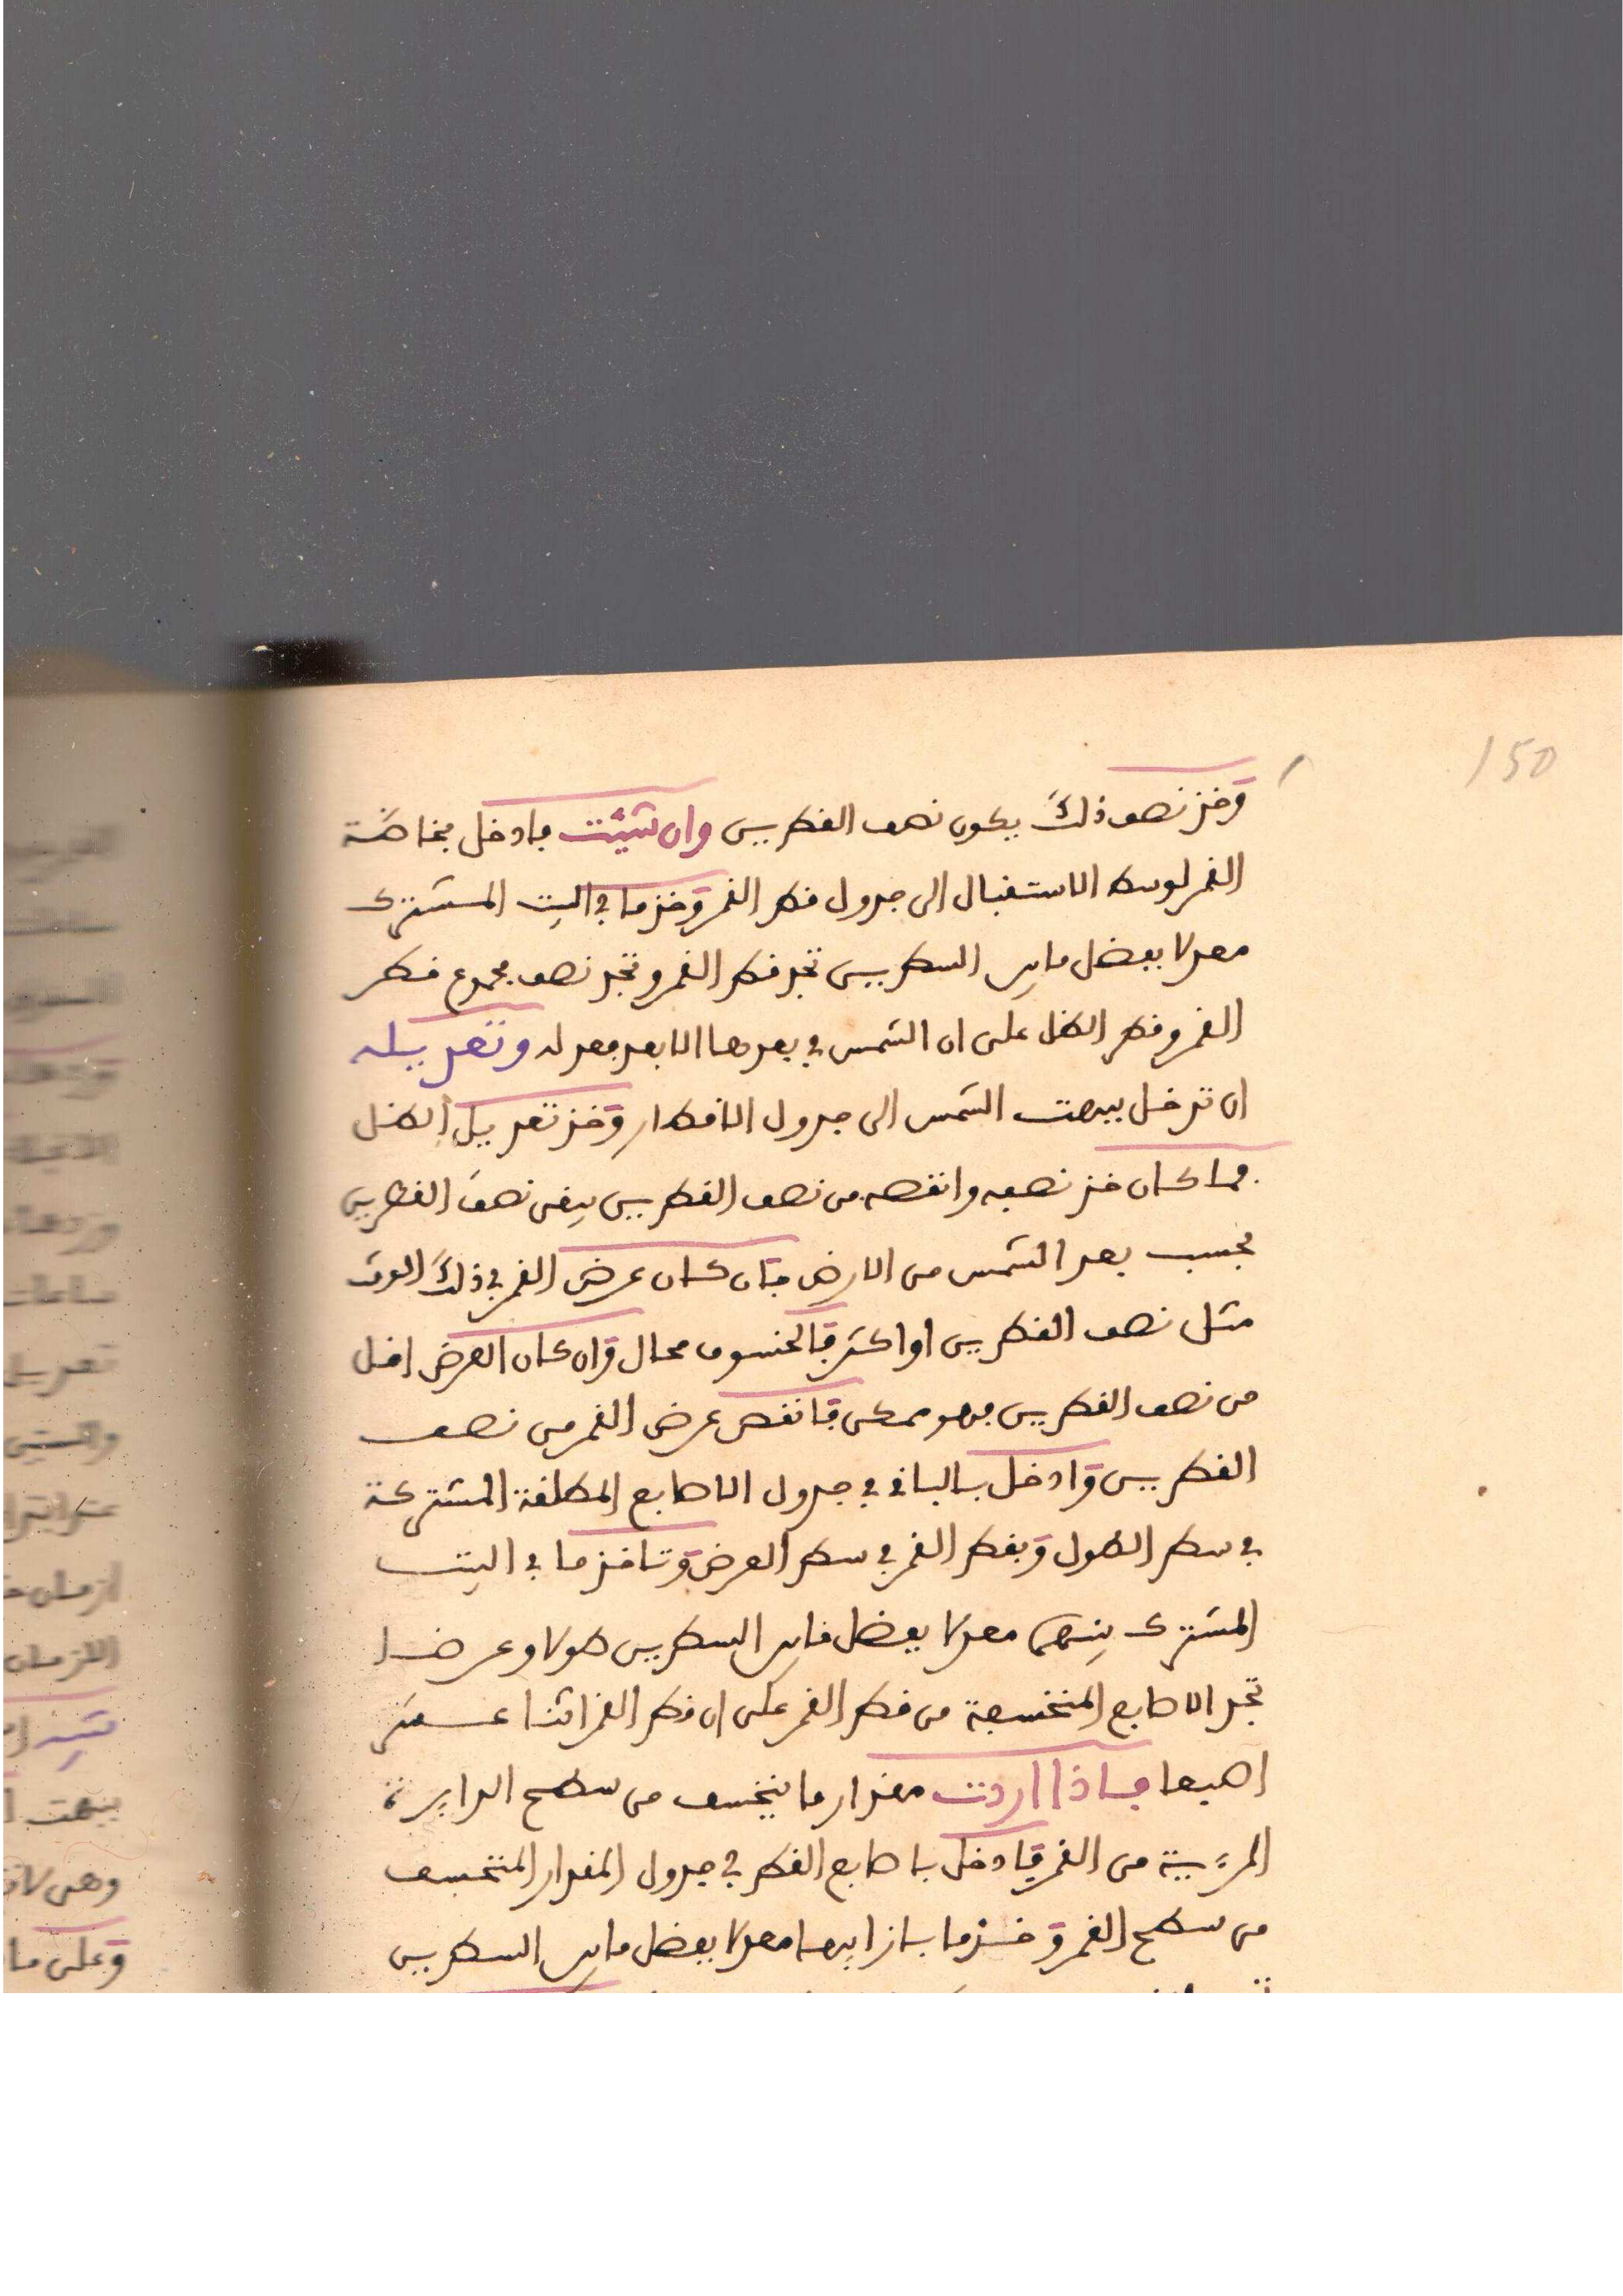 150
وخذ نصف ذلك يكون نصف القطرين وان شئت فادخل بخاصة
القمر لوسط الاستقبال الى جدول قطر القمر وخذ ما في البيت المشترك
معدلا بفضل ما بين السطرين تجد قطر القمر وتجد نصف مجموع قطر
القمر وقطر الظل على ان الشمس في بعدها الابعد فعدله وتعديله
ان تدخل ببهت الشمس الى جدول الاقطار وخذ تعديل الظل
فما كان خذ نصفه وانقصه من نصف القطرين يبقى نصف القطرين
بحسب بعد الشمس من الارض فان كان عرض القمر في ذلك الوقت
مثل نصف القطرين او اكثر فالخسوف محال وان كان العرض اقل
من نصف القطرين فهو ممكن فانقص عرض القمر من نصف
القطرين وادخل بالباقي في جدول الاصابع المطلقة المشتركة
في سطر الطول وبقطر القمر في سطر العرض وتاخذ ما في البيت
المشترك بينهما معدلا بفضل ما بين السطرين طولا وعرضا
تجد الاصابع المنخسفة من قطر القمر على ان قطر القمر اثنا عشر
اصبعا فاذا اردت مقدار ما ينخسف من سطح الدايرة
المرءيية من القمر فادخل باصابع القطر في جدول المقدار المنخسف
من سطح القمر وخذ ما بازايها معدلا بفضل ما بين السطرين